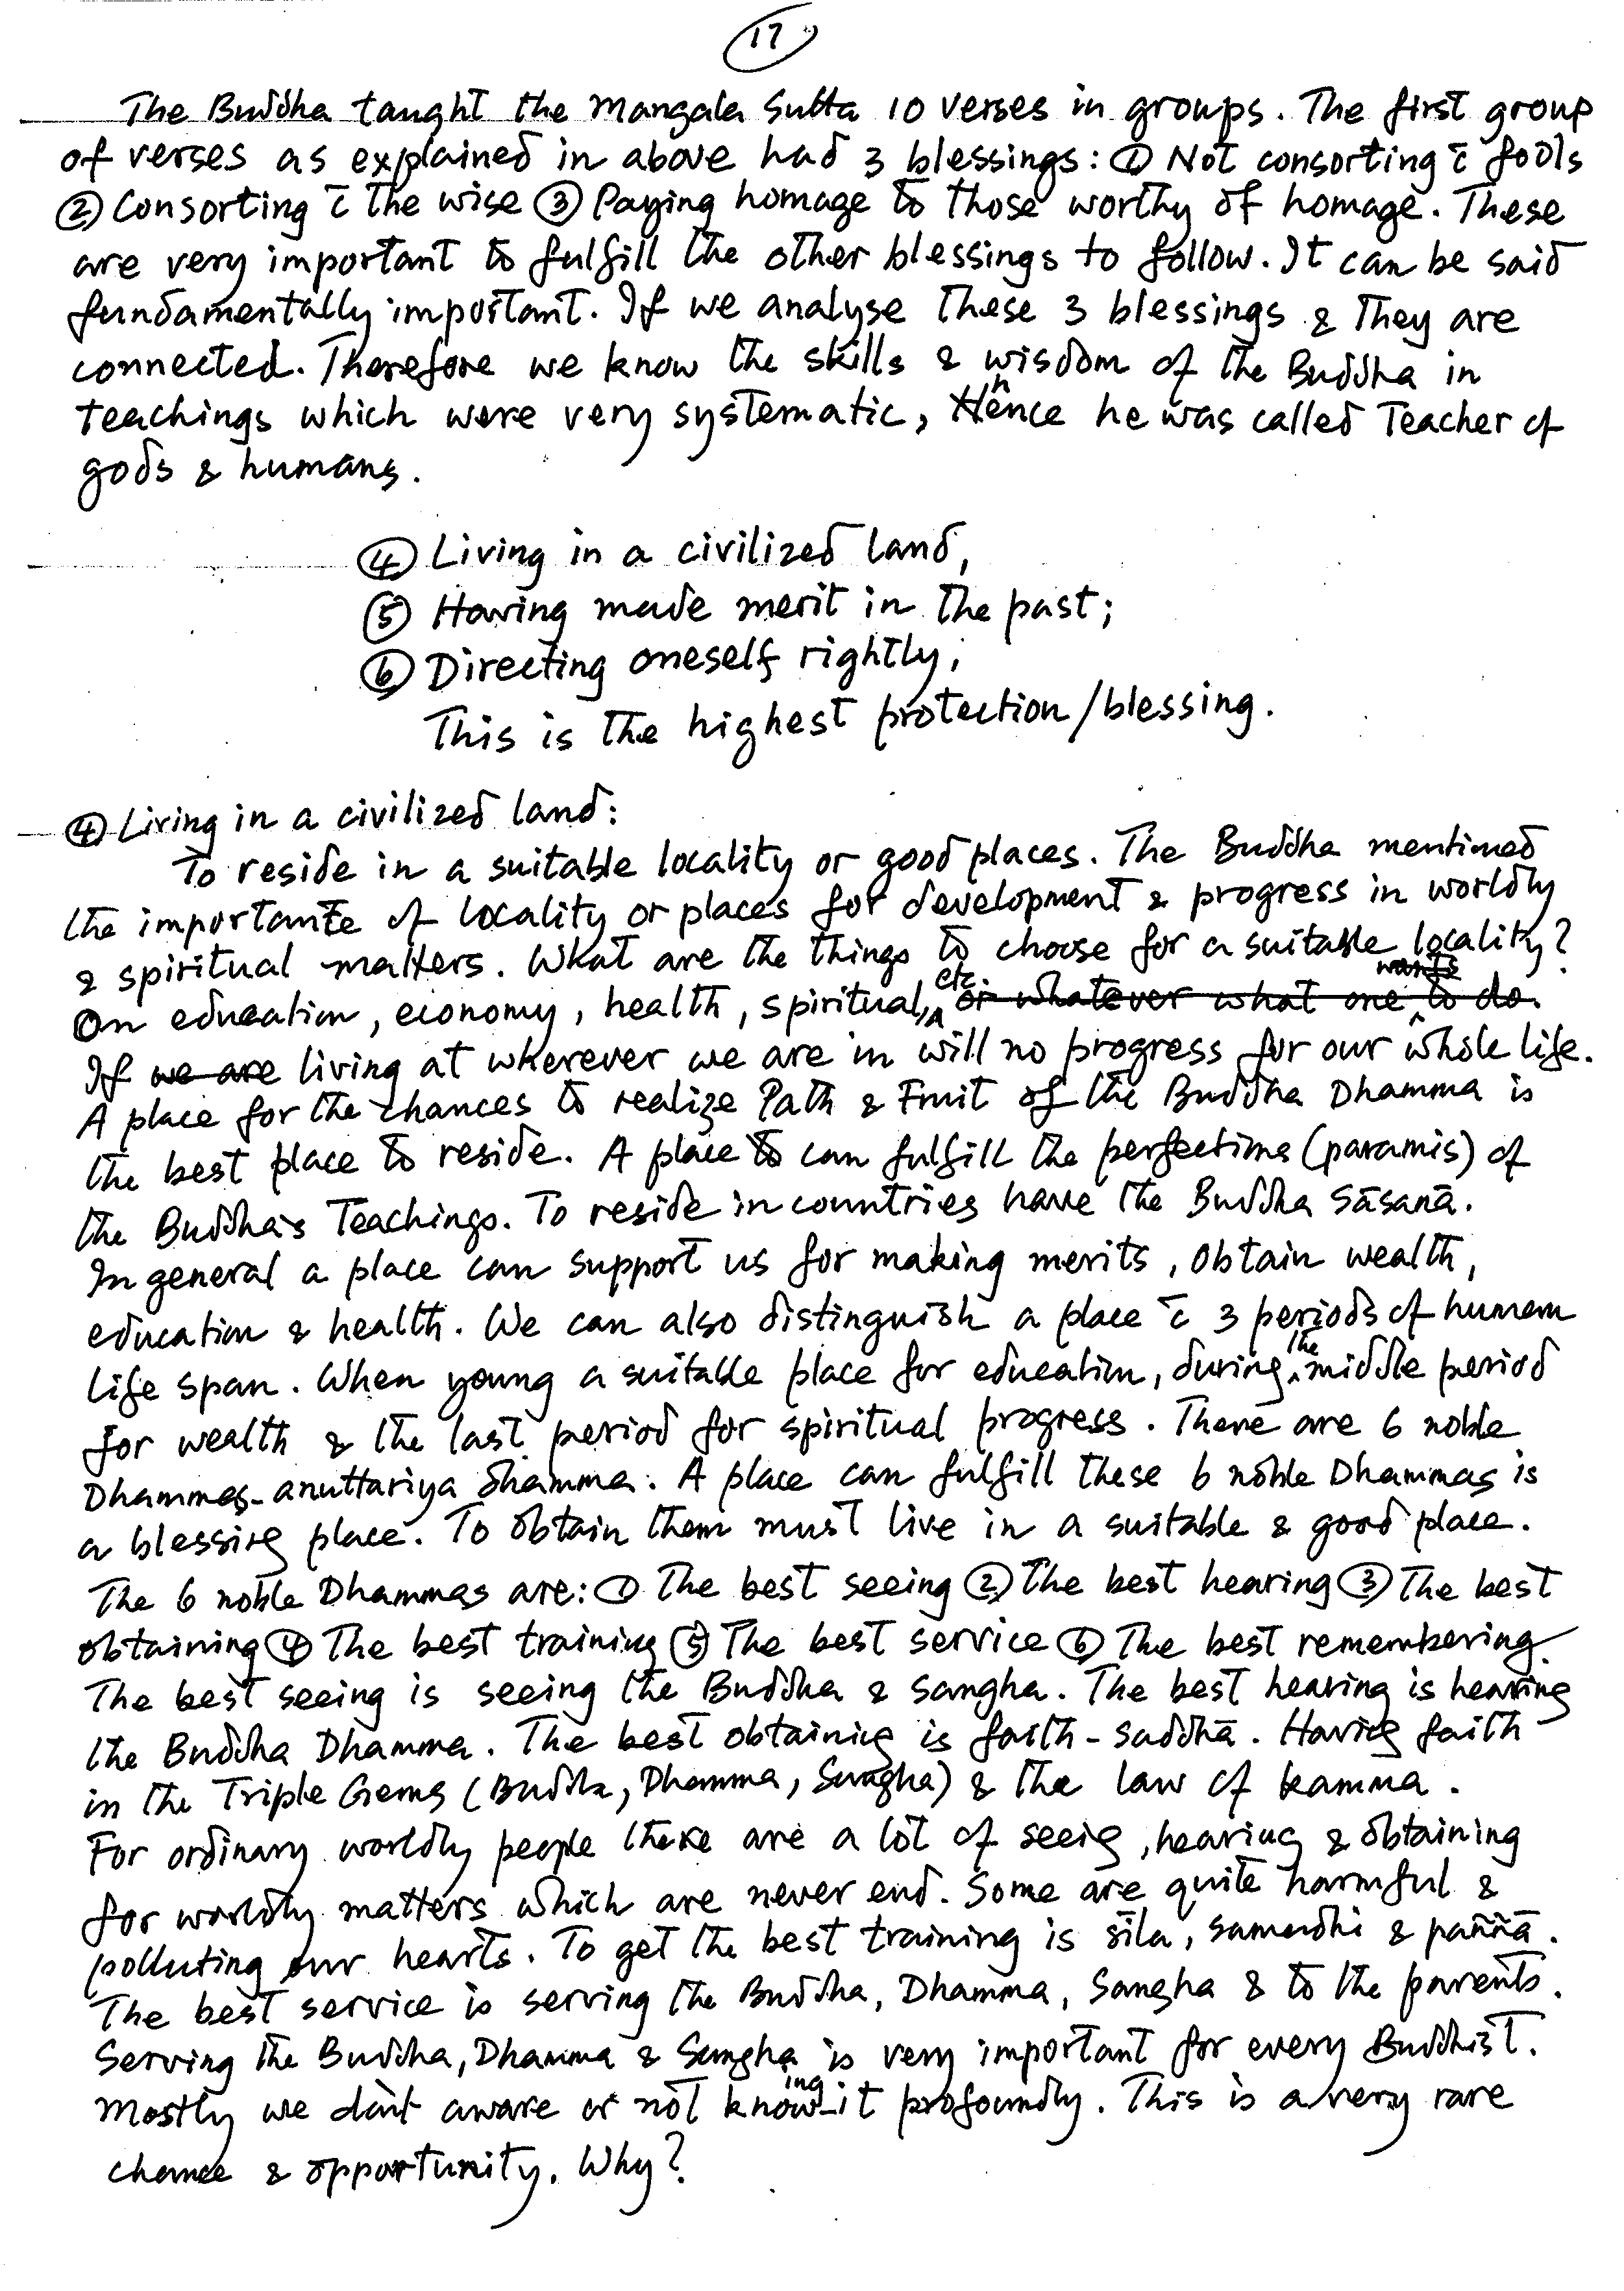 17
The Buddha taught the Mangala Sutta 10 verses in groups. The first group
of verses as explained in above had 3 blessings: ① Not consorting c̄ fools
② Consorting c̄ the wise ③ Paying homage to those worthy of homage. These
are very important to fulfill the other blessings to follow. It can be said
fundamentally important. If we analyse these 3 blessings & they are
connected. Therefore we know the skills & wisdom of the Buddha in
teachings which were very systematic, hence he was called Teacher of
gods & humans.
④ Living in a civilized land,
⑤ Having made merit in the past;
⑥ Directing oneself rightly;
This is the highest protection/blessing.
④ Living in a civilized land:
To reside in a suitable locality or good places. The Buddha mentioned
the importante of locality or places for development & progress in worldly
& spiritual matters. What are the things to choose for a suitable locality?
On education, economy, health, spiritual, etc. or whatever what one wants to do.
If we are living at wherever we are in will no progress for our whole life.
A place for the chances to realize Path & Fruit of the Buddha Dhamma is
the best place to reside. A place to can fulfill the perfections (paramis) of
the Buddha's Teachings. To reside in countries have the Buddha Sāsanā.
In general a place can support us for making merits, obtain wealth,
education & health. We can also distinguish a place c̄ 3 periods of human
life span. When young a suitable place for education, during the middle period
for wealth & the last period for spiritual progress. There are 6 noble
Dhammas- anuttariya dhamma. A place can fulfill these 6 noble Dhammas is
a blessing place. To obtain them must live in a suitable & good place.
The 6 noble Dhammas are: ① The best seeing ② The best hearing ③ The best
obtaining ④ The best training ⑤ The best service ⑥ The best remembering.
The best seeing is seeing the Buddha & Sangha. The best hearing is hearing
the Buddha Dhamma. The best obtaining is faith - saddhā. Having faith
in the Triple Gems (Buddha, Dhamma, Sangha) & the law of kamma.
For ordinary worldly people there are a lot of seeing, hearing & obtaining
for worldly matters which are never end. Some are quite harmful &
polluting our hearts. To get the best training is sīla, samadhi & paññā.
The best service is serving the Buddha, Dhamma, Sangha & to the parents.
Serving the Buddha, Dhamma & Sangha is very important for every Buddhist.
Mostly we don't aware or not knowing it profoundly. This is a very rare
chance & opportunity. Why?